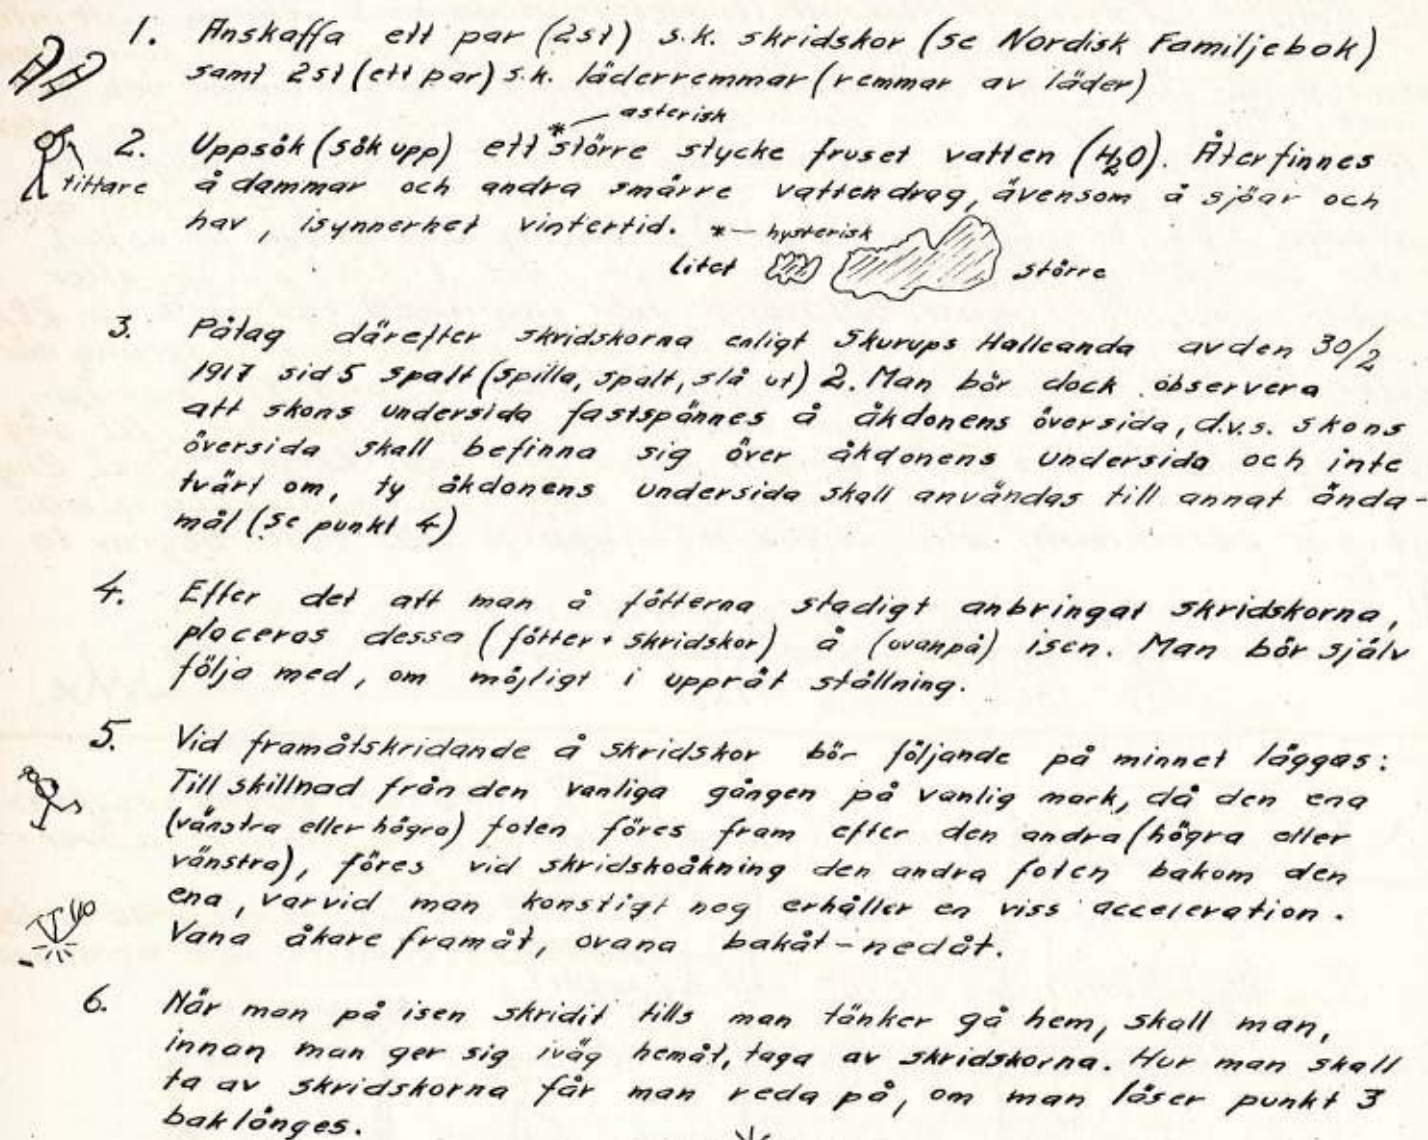 1. Anskaffa ett par (2st) s.k. skridskor (se Nordisk Familjebok)
samt 2st (ett par) s.k. läderremmar (remmar av läder)
* — asterisk
2. Uppsök (sök upp) ett *större stycke fruset vatten (H2O). Återfinnes
tittare
å dammar och andra smärre vattendrag, ävensom å sjöar och
hav, isynnerhet vintertid. * — hysterisk
litet större
3. Påtag därefter skridskorna enligt Skurups Halleanda av den 30/2
1917 sid 5 spalt (spilla, spalt, slå ut) 2. Man bör dock observera
att skons undersida fastspännes å åkdonens översida, d.v.s. skons
översida skall befinna sig över åkdonens undersida och inte
tvärt om, ty åkdonens undersida skall användas till annat ända-
mål (se punkt 4)
4. Efter det att man å fötterna stadigt anbringat skridskorna,
placeras dessa (fötter + skridskor) å (ovanpå) isen. Man bör själv
följa med, om möjligt i upprät ställning.
5. Vid framåtskridande å skridskor bör följande på minnet läggas:
Till skillnad från den vanliga gången på vanlig mark, då den ena
(vänstra eller högra) foten föres fram efter den andra (högra eller
vänstra), föres vid skridskoåkning den andra foten bakom den
ena, varvid man konstigt nog erhåller en viss acceleration.
Vana åkare framåt, ovana bakåt-nedåt.
6. När man på isen skridit tills man tänker gå hem, skall man,
innan man ger sig iväg hemåt, taga av skridskorna. Hur man skall
ta av skridskorna får man reda på, om man läser punkt 3
baklänges.